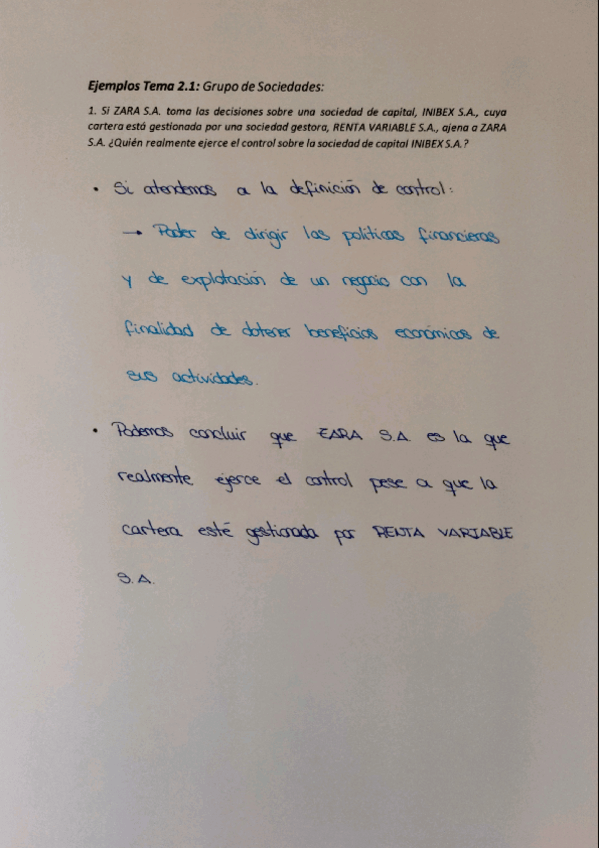 Ejemplos Tema 2.1: Grupo de Sociedades:
1. Si ZARA S.A. toma las decisiones sobre una sociedad de capital, INIBEX S.A., cuya
cartera está gestionada por una sociedad gestora, RENTA VARIABLE S.A., ajena a ZARA
S.A. ¿Quién realmente ejerce el control sobre la sociedad de capital INIBEX S.A.?
• Si atendemos a la definición de control:
→ Poder de dirigir las políticas financieras
y de explotación de un negocio con la
finalidad de obtener beneficios económicos de
sus actividades.
• Podemos concluir que ZARA S.A. es la que
realmente ejerce el control pese a que la
cartera esté gestionada por RENTA VARIABLE
S.A.